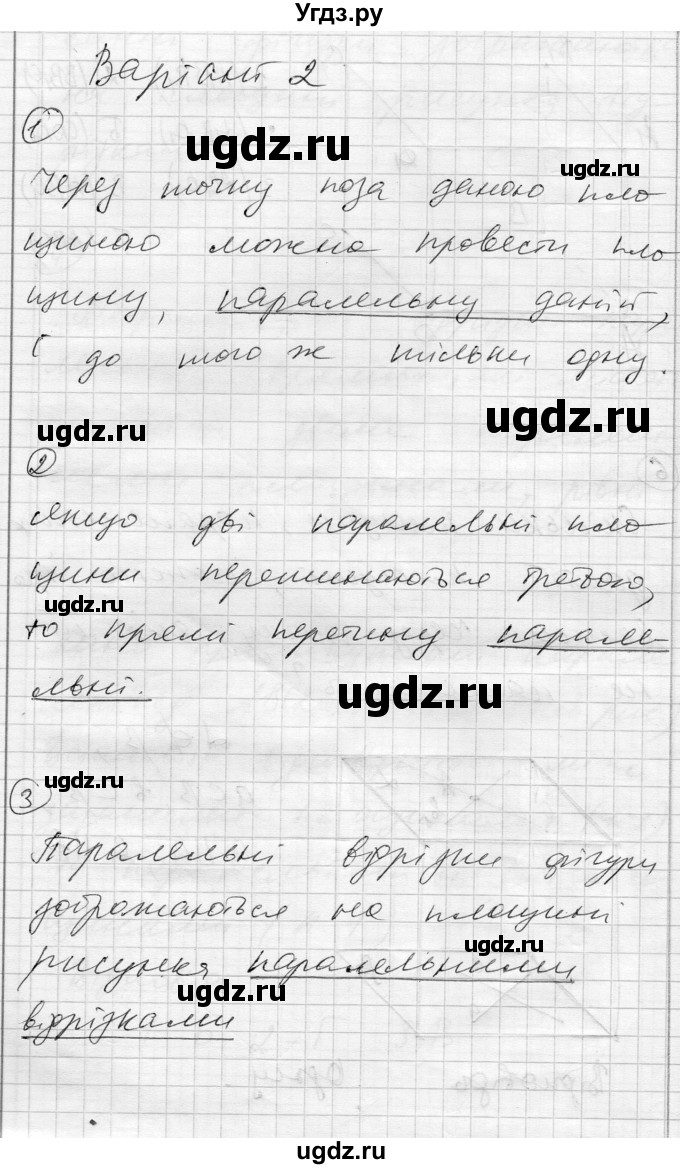 Угдз.ру
Варіант 2
ugdz.ru
1
ugdz.ru
Через точку поза даною пло
щиною можна провести пло
щину, паралельну даній,
і до того ж тільки одну.
ugdz.ru
ugdz.ru
2
Якщо дві паралельні пло
щини перетинаються третьою,
ugdz.ru
то прямі перетину парале-
льні.
ugdz.ru
ugdz.ru
3
Паралельні відрізки фігури
зображаються на площині
ugdz.ru
рисунка паралельними
ugdz.ru
відрізками
ugdz.ru
ugdz.ru